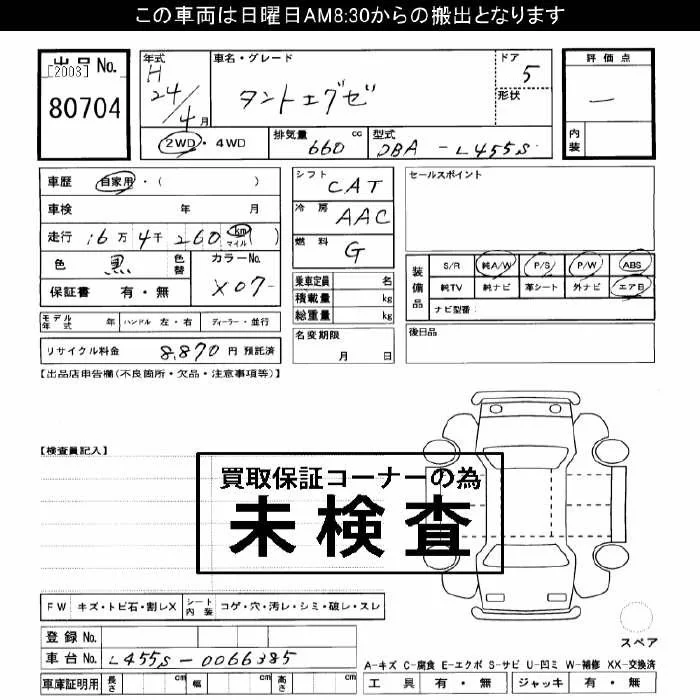 この車両は日曜日AM8:30からの搬出となります
出品No.
[2003]
80704
年式
H 24/4月
車名・グレード
タントエグゼ
ドア
5
形状
評価点
—
内装
2WD・4WD
排気量 660 cc
型式 DBA-L455S
車歴 自家用・( )
車検 年 月
走行 16万4千260 km マイル ( )
色 黒 色替
カラーNo. X07-
保証書 有・無
シフト CAT
冷房 AAC
燃料 G
乗車定員 名
積載量 kg
総重量 kg
セールスポイント
装備品
S/R 純A/W P/S P/W ABS
純TV 純ナビ 革シート 外ナビ エアB
ナビ型番:
モデル年式 年 ハンドル 左・右 ディーラー・並行
名変期限
月 日
後日品
リサイクル料金 8,870 円 預託済
【出品店申告欄(不良箇所・欠品・注意事項等)】
【検査員記入】
買取保証コーナーの為
未検査
FW キズ・トビ石・割レX シート内装 コゲ・穴・汚レ・シミ・破レ・スレ
スペア
登録No.
車台No. L455S-0066385
A-キズ C-腐食 E-エクボ S-サビ U-凹ミ W-補修 XX-交換済
車庫証明用 長さ cm 幅 cm 高さ cm
工具 有・無 ジャッキ 有・無